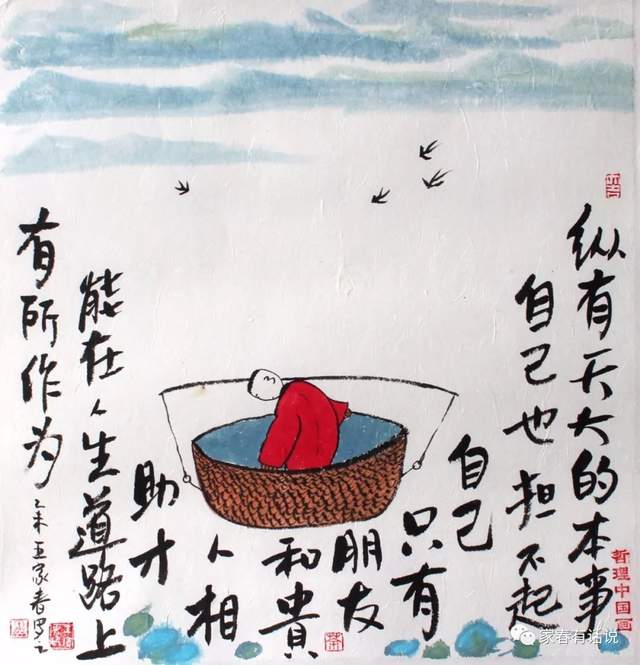 纵有天大的本事
自己也担不起
自己
只有
朋友
和貴
人相
助才
能在人生道路上
有所作为
乙未王家春
哲理中国画
家春有话说